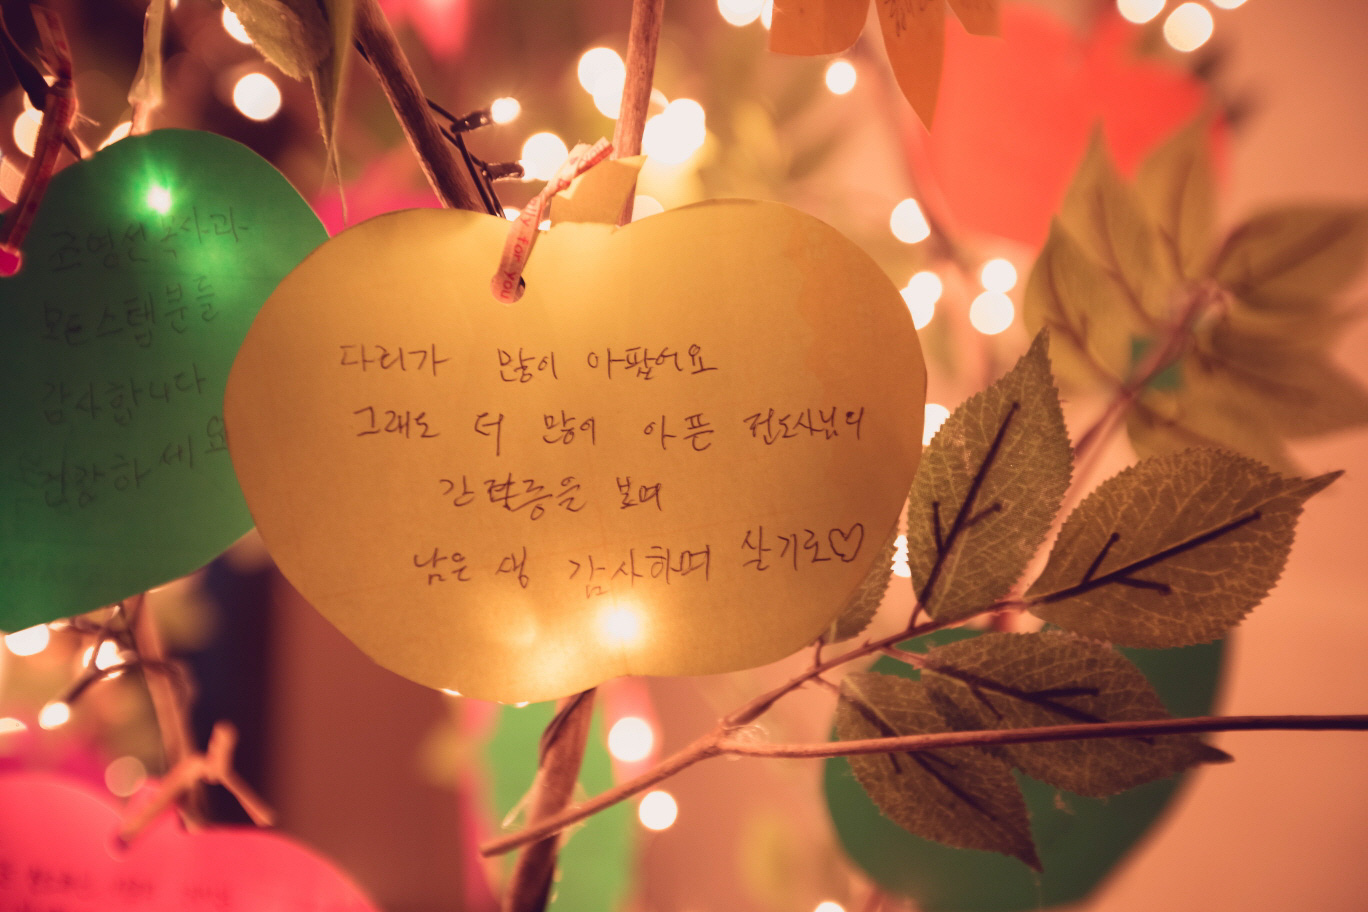 다리가 많이 아팠어요
그래도 더 많이 아픈 전도사님의
간절함을 보며
남은 생 감사하며 살기로♡
조영선목사과
모든스텝분들
감사합니다
건강하세요
for you